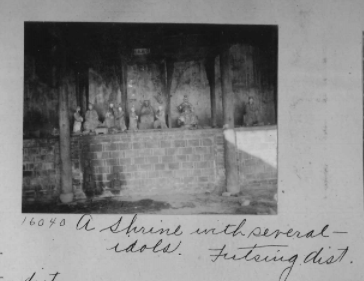 16040 A shrine with several-
idols. Futsing dist.